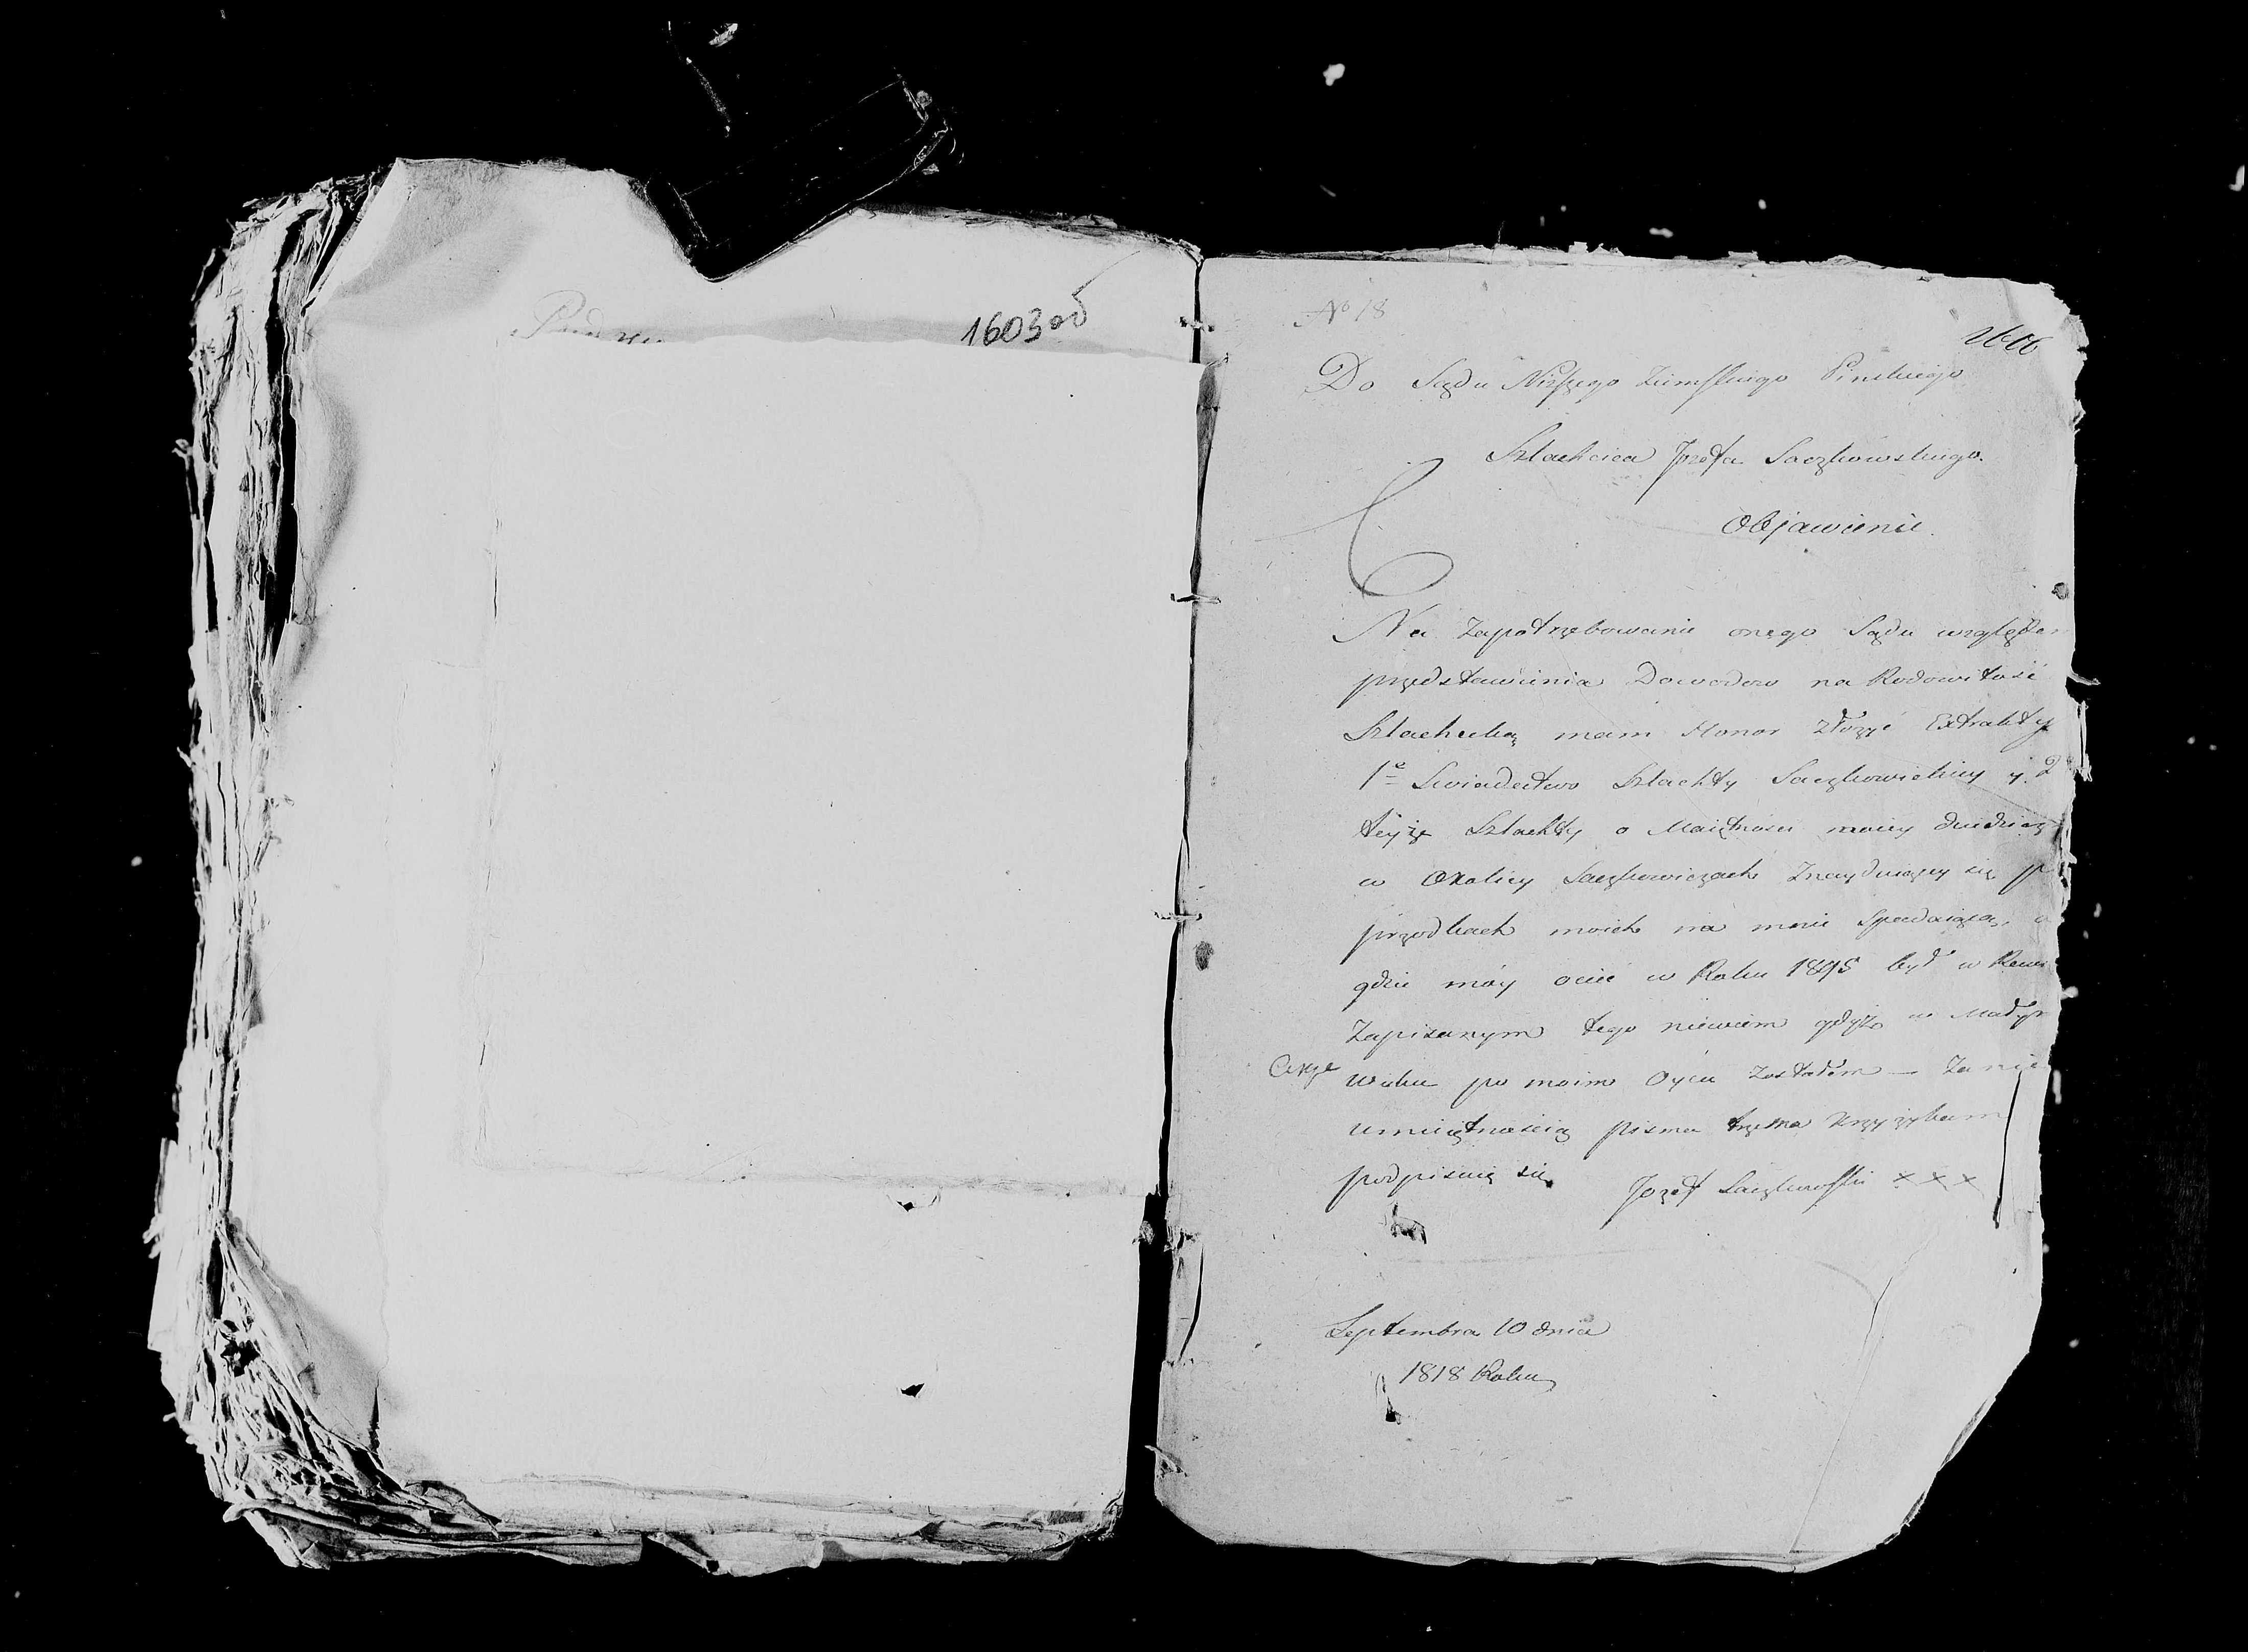 1603 об
№ 18
Do Sądu Niższego Ziemskiego Pinskiego
Szlachcica Jozefa Saczkowskiego.
Objawienie.
Na Zapotrzebowanie onego Sądu względem
przedstawienia Dowodow na Rodowitość
Szlachecką mam Honor złożyć Extrakty
1e Swiadectwo Szlachty Saczkowickiey y 2
teyże Szlachty o Maiętnosci moiey dziedzicz
w Okolicy Saczkowiczach Znayduiącey się p
przodkach moich na mnie Spadaiącą,
gdzie móy ociec w Roku 1795 był w Rewi
Zapisanym tego niewiem gdyż w Małym
wieku po moim Oycu Zostałem — Za nie
umieiętnoscią pisma trzema krzyżykam
podpisuię się Jozef Saczkowski x x x
Septembra 10 dnia
1818 Roku